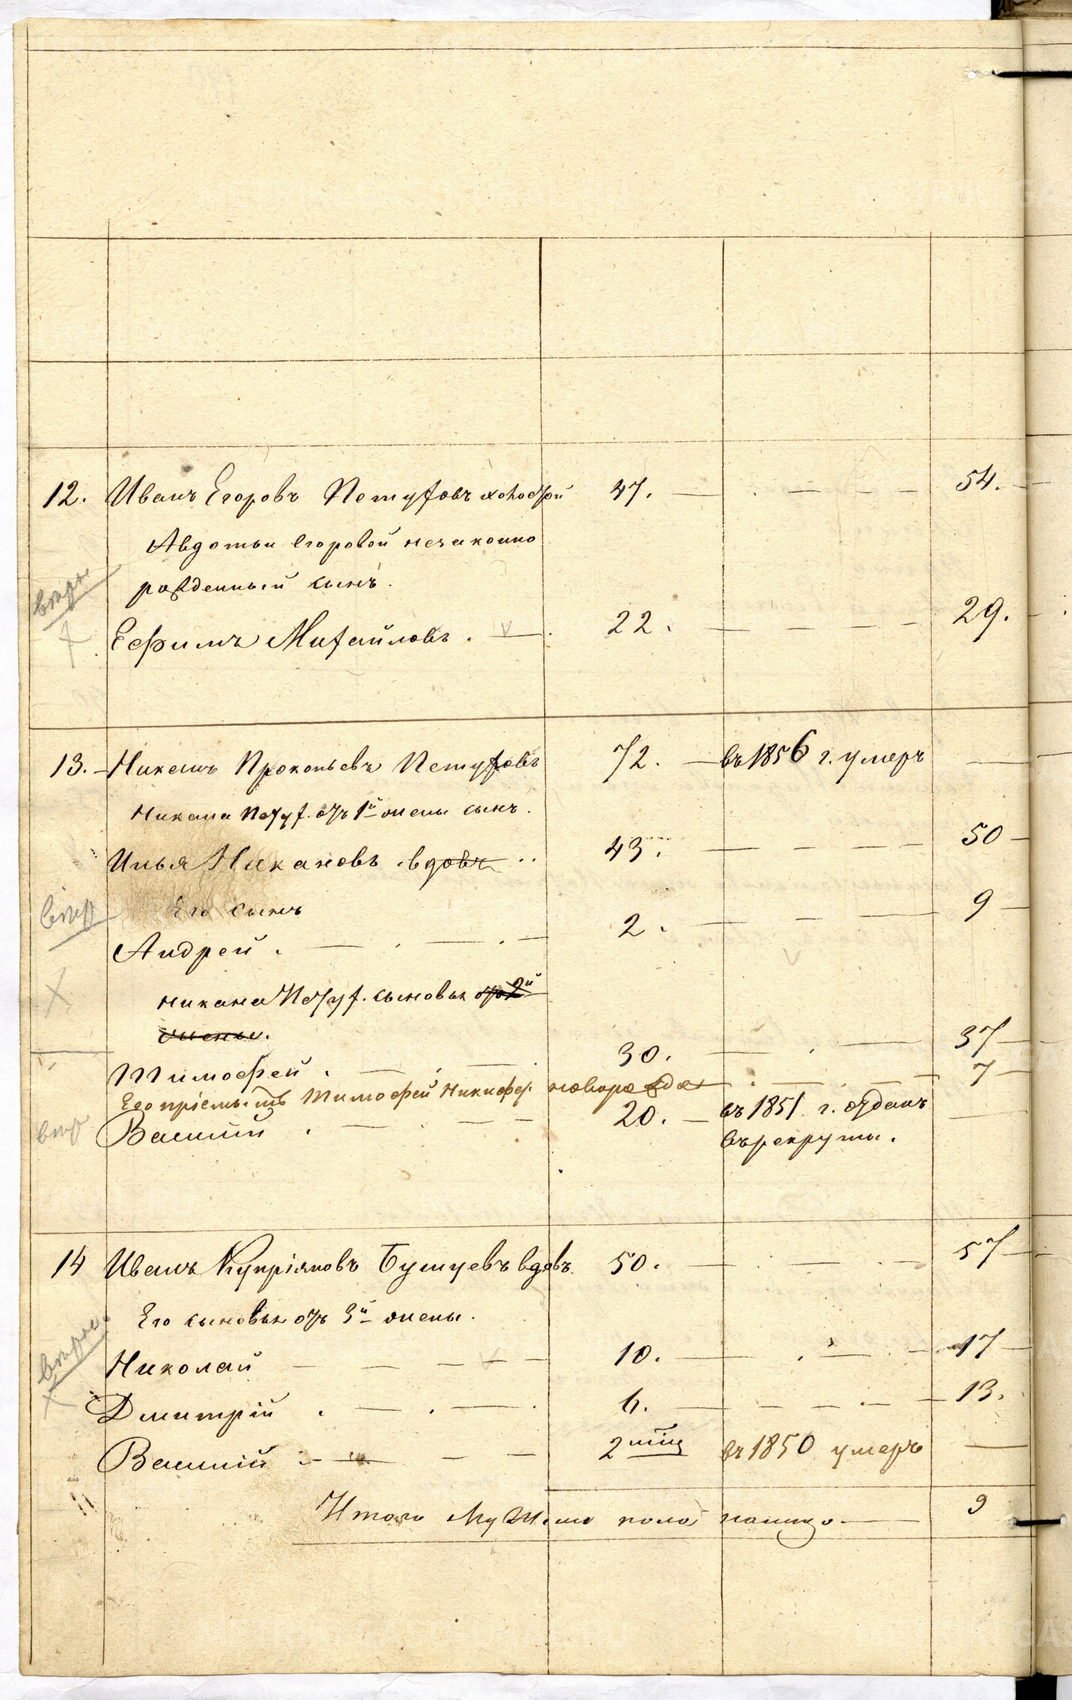 12. Иванъ Егоровъ Петуховъ холостой 47. 54.
Авдотьи Егоровой незаконно
рожденный сынъ.
Ефимъ Михайловъ. 22. 29.
13. Никанъ Прокопьевъ Петуховъ 72. въ 1856 г. умеръ
Никана Петух. отъ 1й жены сынъ.
Илья Никановъ вдовъ 43. 50
Его сынъ
Андрей. 2. 9
Никана Петух. сыновья отъ 2й
жены.
Тимофей. 30. 37
Его пріемышъ Тимофей Никифор. новорожда 7
Василій. 20. въ 1851 г. отданъ
въ рекруты.
14 Иванъ Купріяновъ Бушуевъ вдовъ. 50. 57
Его сыновья отъ 3й жены.
Николай 10. 17
Дмитрій. 6. 13.
Василій 2 въ 1850 умеръ
Итого Мужеска пола налицо. 9